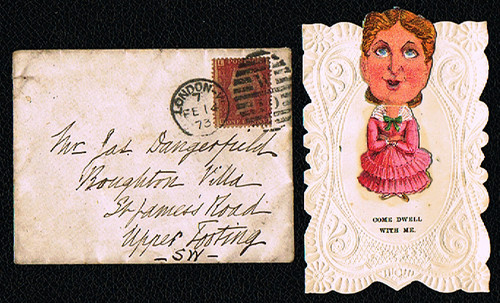 LONDON
FE 14
73
Mr Jas. Dangerfield
Boughton Villa
St James's Road
Upper Tooting
SW
COME DWELL
WITH ME.